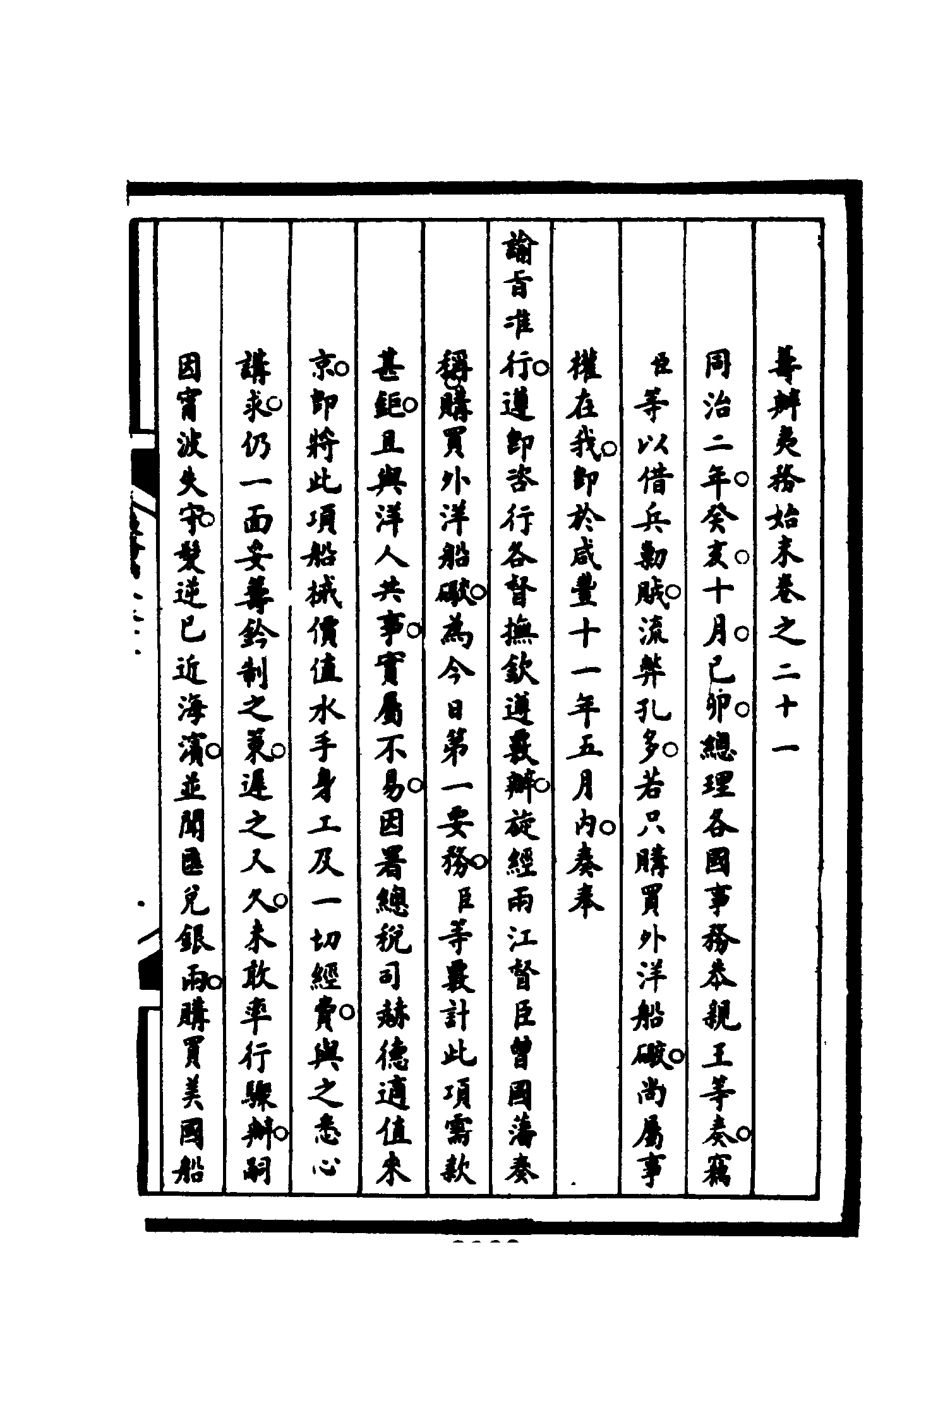 籌辦夷務始末卷之二十一
同治二年。癸亥。十月。己卯。總理各國事務恭親王等奏。竊
臣等以借兵勦賊。流弊孔多。若只購買外洋船礮。尚屬事
權在我。卽於咸豐十一年五月內。奏奉
諭旨准行。遵卽咨行各督撫欽遵覈辦。旋經兩江督臣曾國藩奏
稱。購買外洋船礮。為今日第一要務。臣等覈計此項需款
甚鉅。且與洋人共事。實屬不易。因署總稅司赫德適值來
京。卽將此項船械價值水手身工及一切經費。與之悉心
講求。仍一面妥籌鈐制之策。遲之又久。未敢率行驟辦。嗣
因甯波失守。髮逆已近海濱。並聞匪兌銀兩。購買美國船